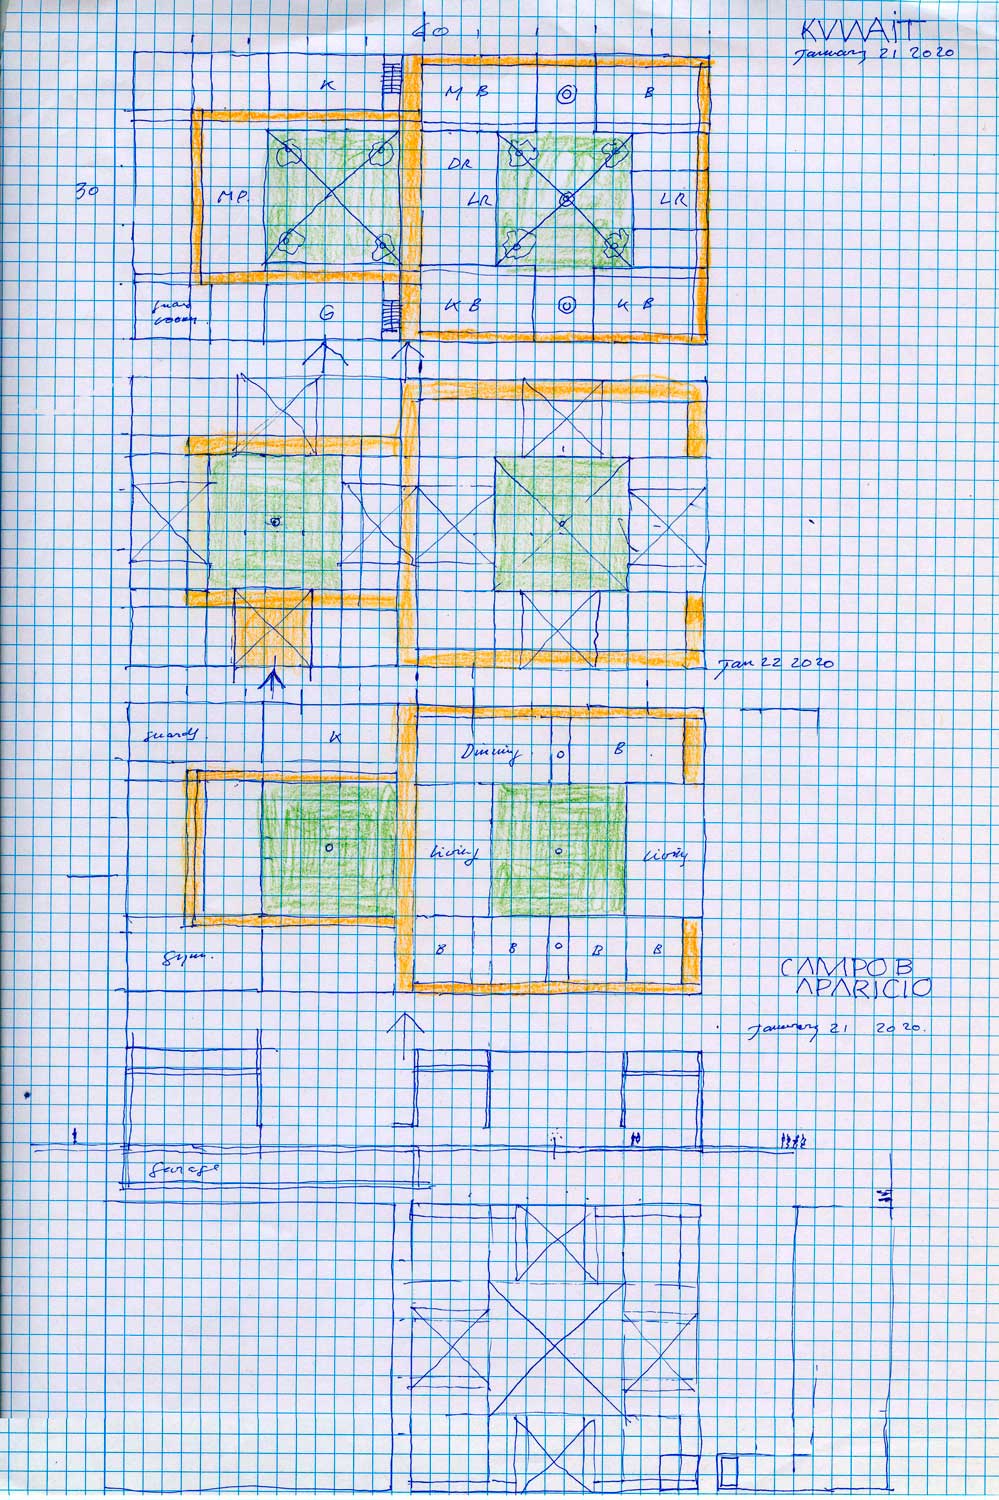 60
KUWAIT
January 21 2020
K
M B
B
DR
30
MP.
LR
LR
guard
room.
G
K B
K B
Jan 22 2020
guards.
K
Dinning
B
living
living
gym.
B
B
B
B
CAMPO B
APARICIO
January 21 2020.
garage